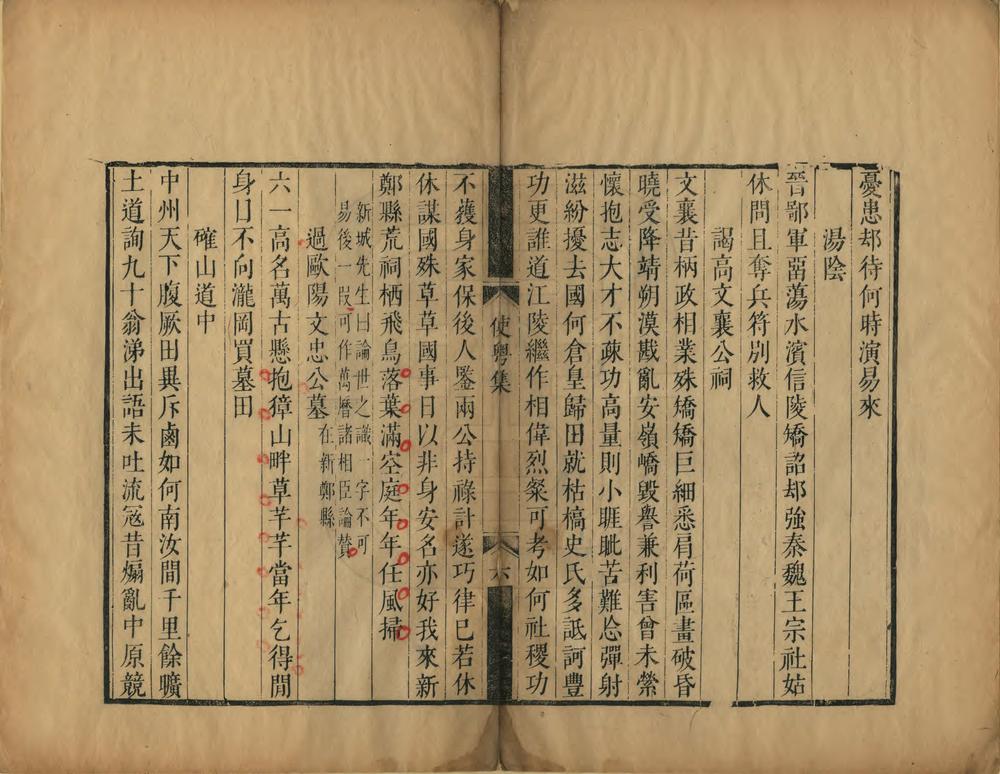 憂患却待何時演易來
湯陰
晉鄙軍留蕩水濱信陵矯詔却強秦魏王宗社姑
休問且奪兵符別救人
謁高文襄公祠
文襄昔柄政相業殊矯矯巨細悉肩荷區畫破昏
曉受降靖朔漠戡亂安嶺嶠毀譽兼利害曾未縈
懷抱志大才不疎功高量則小睚眦苦難忘彈射
滋紛擾去國何倉皇歸田就枯槁史氏多詆訶豐
功更誰道江陵繼作相偉烈粲可考如何社稷功
使粵集
六
不蔭身家保後人鑒兩公持祿計遂巧律已若休
休謀國殊草草國事日以非身安名亦好我來新
鄭縣荒祠栖飛鳥落葉滿空庭年年任風掃
新城先生曰論世之識一字不可
易後一叚可作萬曆諸相臣論贊
過歐陽文忠公墓在新鄭縣
六一高名萬古懸抱獐山畔草芊芊當年乞得閒
身日不向瀧岡買墓田
確山道中
中州天下腹厥田異斥鹵如何南汝間千里餘曠
土道詢九十翁涕出語未吐流冦昔煽亂中原競